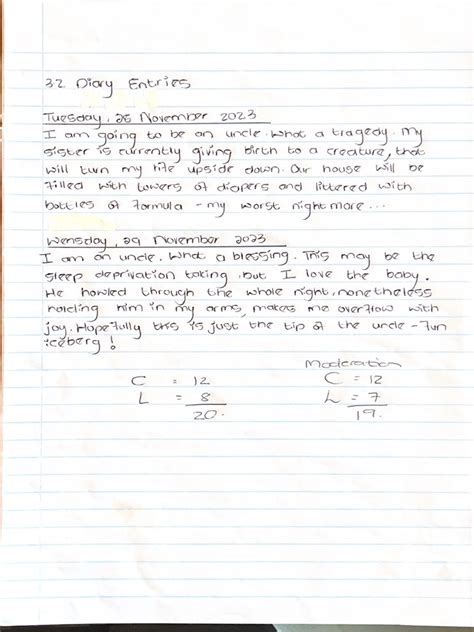 3.2 Diary Entries
Tuesday, 28 November 2023
I am going to be an uncle. What a tragedy. My
sister is currently giving birth to a creature, that
will turn my life upside down. Our house will be
filled with towers of diapers and littered with
bottles of formula - my worst nightmare ...
Wensday, 29 November 2023
I am an uncle. What a blessing. This may be the
sleep deprivation talking, but I love the baby.
He howled through the whole night, nonetheless
holding him in my arms, makes me overflow with
joy. Hopefully this is just the tip of the uncle - fun
iceberg!
Moderation
C = 12 C = 12
L = 8 L = 7
20. 19.